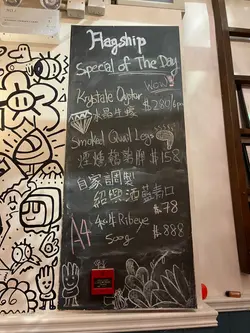 Flagship
Special of The Day
WOW!
Krystale Oyster
水晶生蠔 $280/6pcs
Smoked Quail Legs
煙燻鵪鶉脾 $158
自家調製
紹興酒藍青口
$78
A4 和牛 Ribeye
500g $888